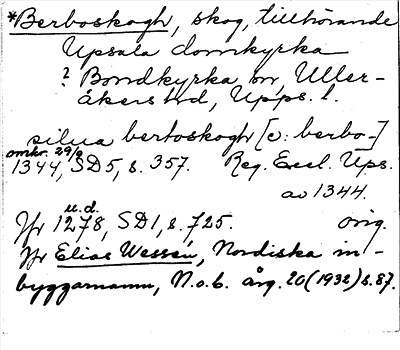 *Berboskogh, skog, tillhörande
Upsala domkyrka
? Bondkyrka sn, Uller-
åkers hd, Upps. l.
silua bertoskogh [ɔ: berbo-]
omkr. 29/9
1344, SD5, s. 357. Reg. Eccl. Ups.
av 1344.
u.d.
Jfr 1278, SD1, s. 725. orig.
Jfr Elias Wessén, Nordiska in-
byggarnamn, N.o.b. årg. 20 (1932) s. 87.